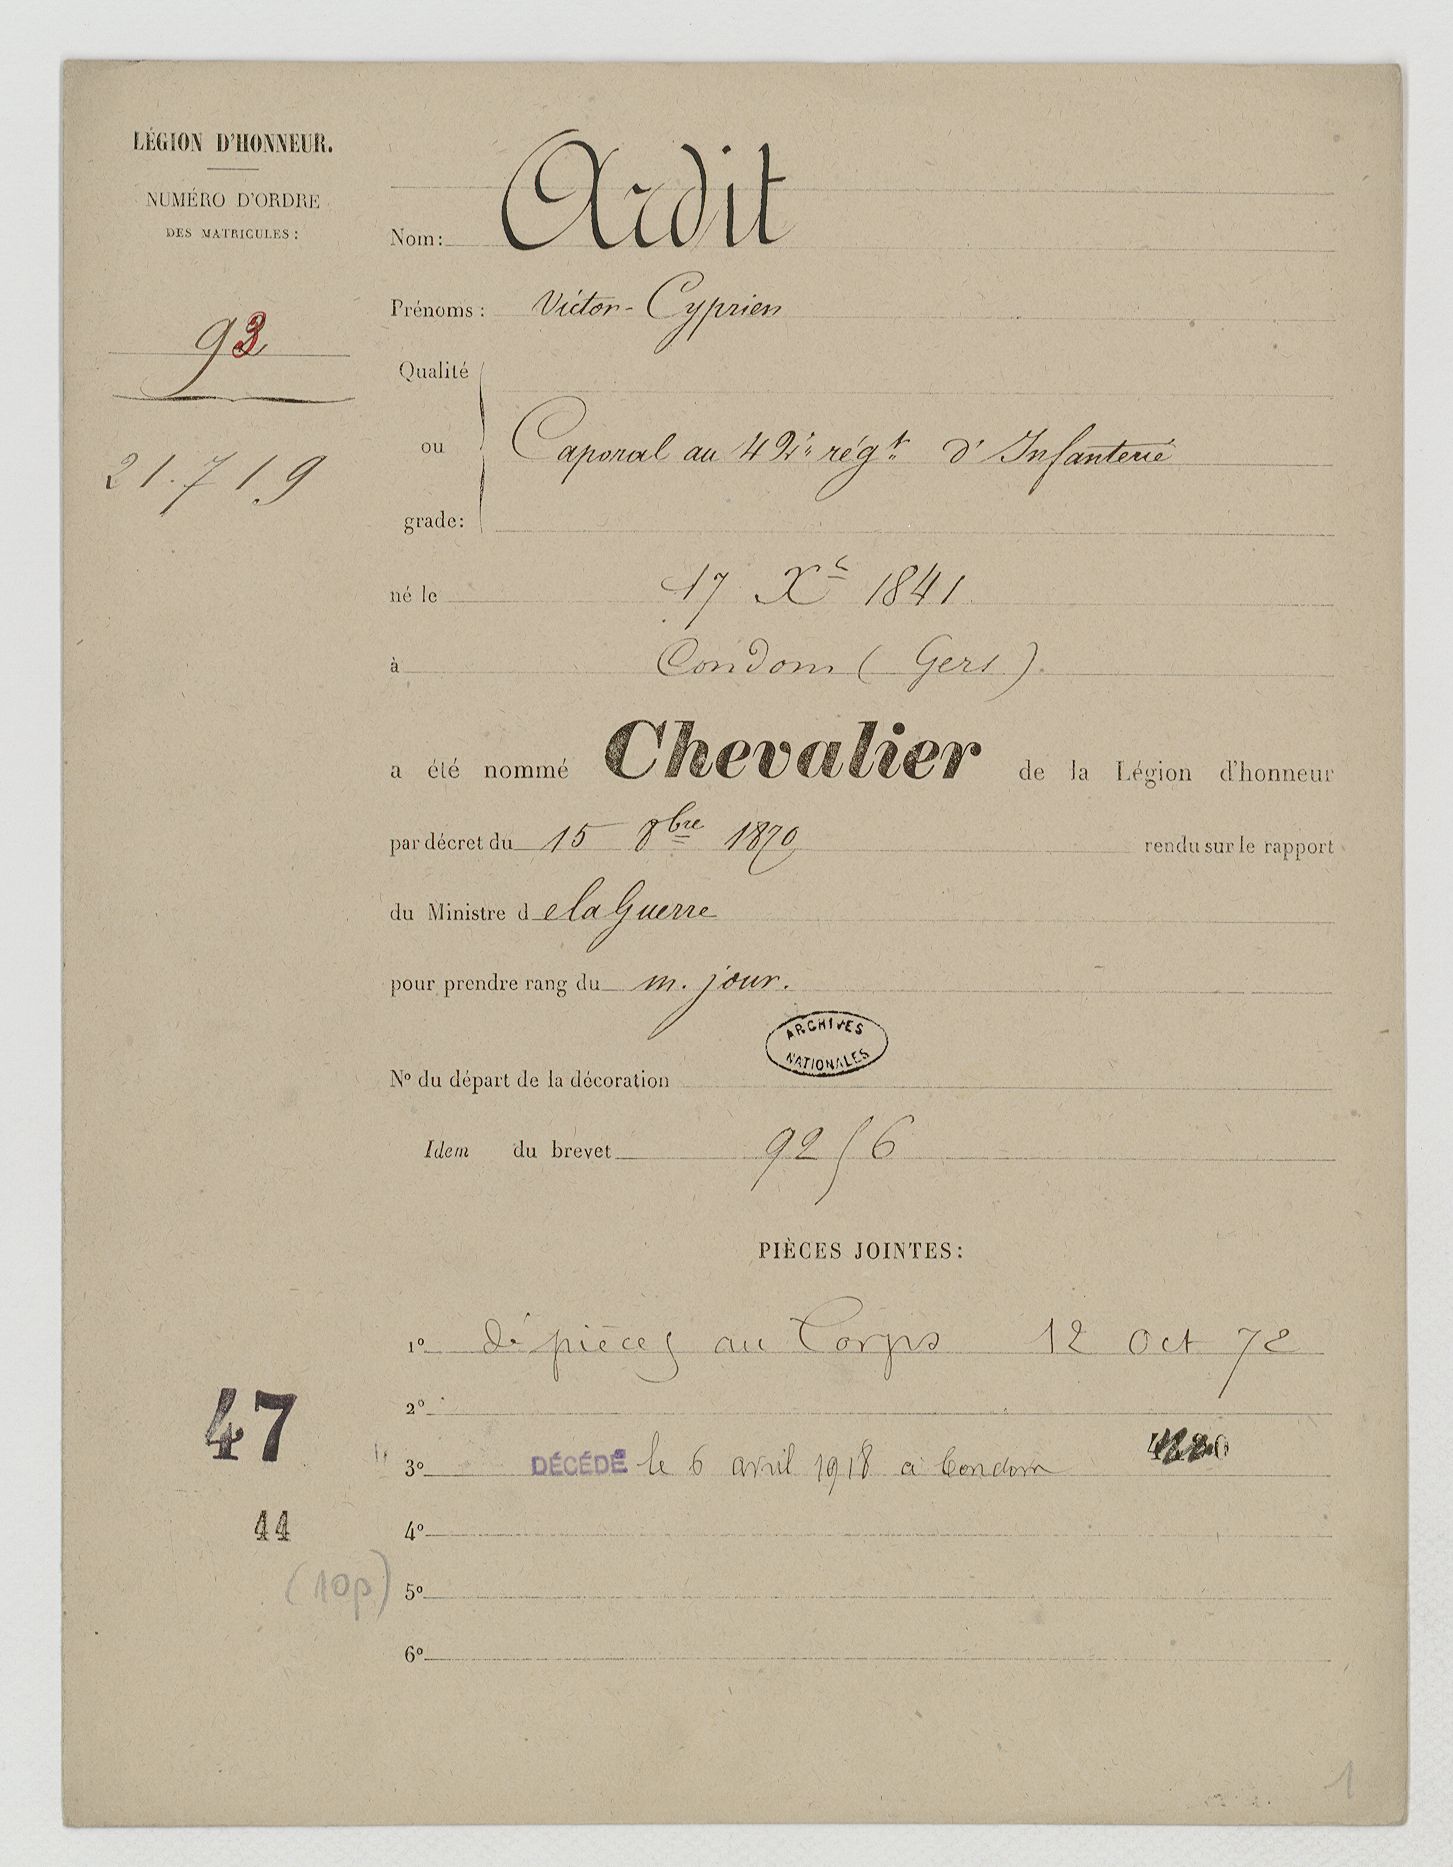 LÉGION D'HONNEUR.
NUMÉRO D'ORDRE
DES MATRICULES:
93
21.719
Nom: Ardit
Prénoms: Victor-Cyprien
Qualité
ou Caporal au 42e régt d'Infanterie
grade:
né le 17 Xe 1841
à Condom (Gers).
a été nommé Chevalier de la Légion d'honneur
par décret du 15 8bre 1870 rendu sur le rapport
du Ministre de la Guerre
pour prendre rang du m. jour.
ARCHIVES
NATIONALES
No du départ de la décoration
Idem du brevet 9256
PIÈCES JOINTES:
1o de pièces au Corps 12 Oct 72
2o
47
3o DÉCÉDÉ le 6 avril 1918 à Condom
44
4o
(10p)
5o
6o
1